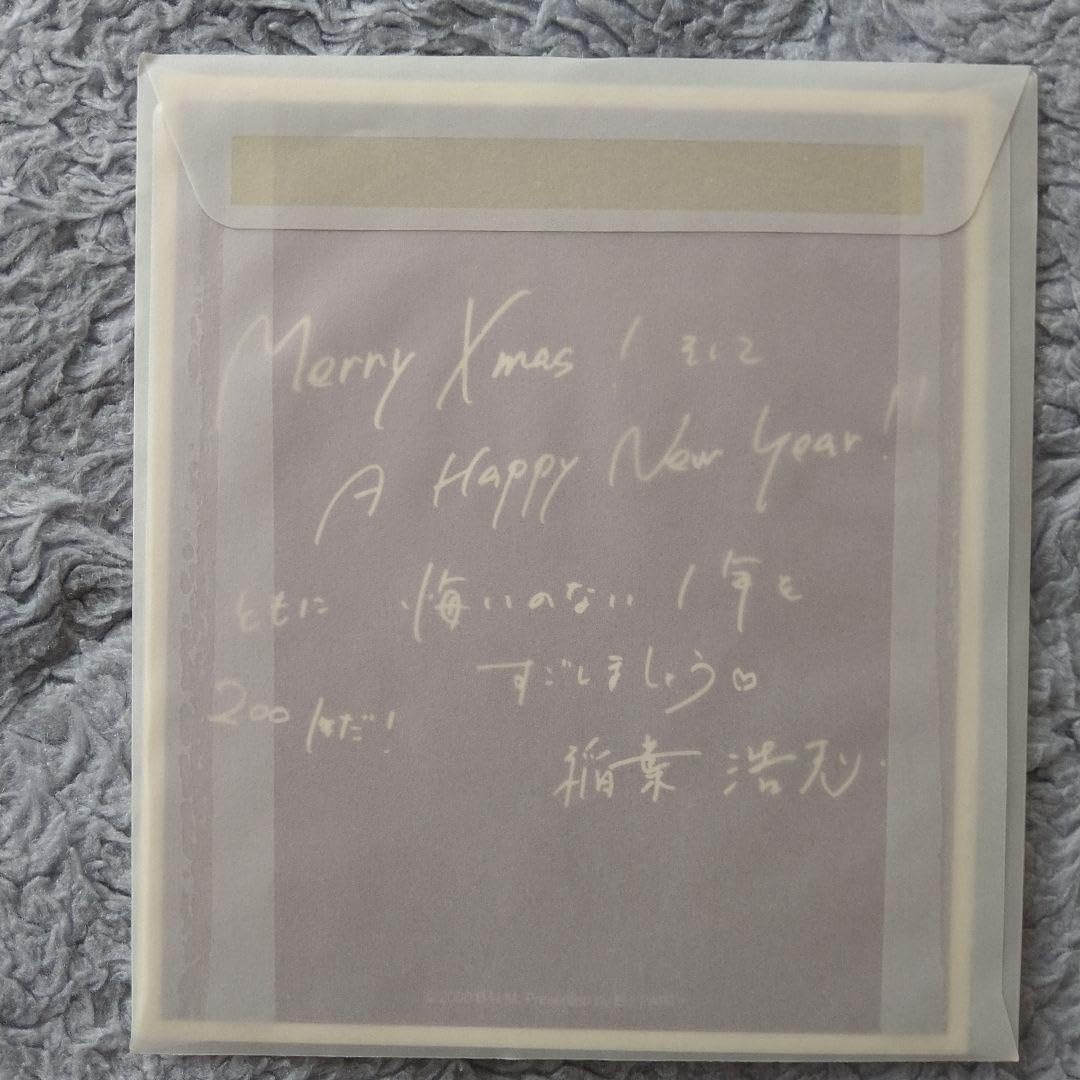 Merry Xmas! そして
A Happy New Year!!
ともに 悔いのない 1年を
すごしましょう♡
200%だ!
稲葉 浩志